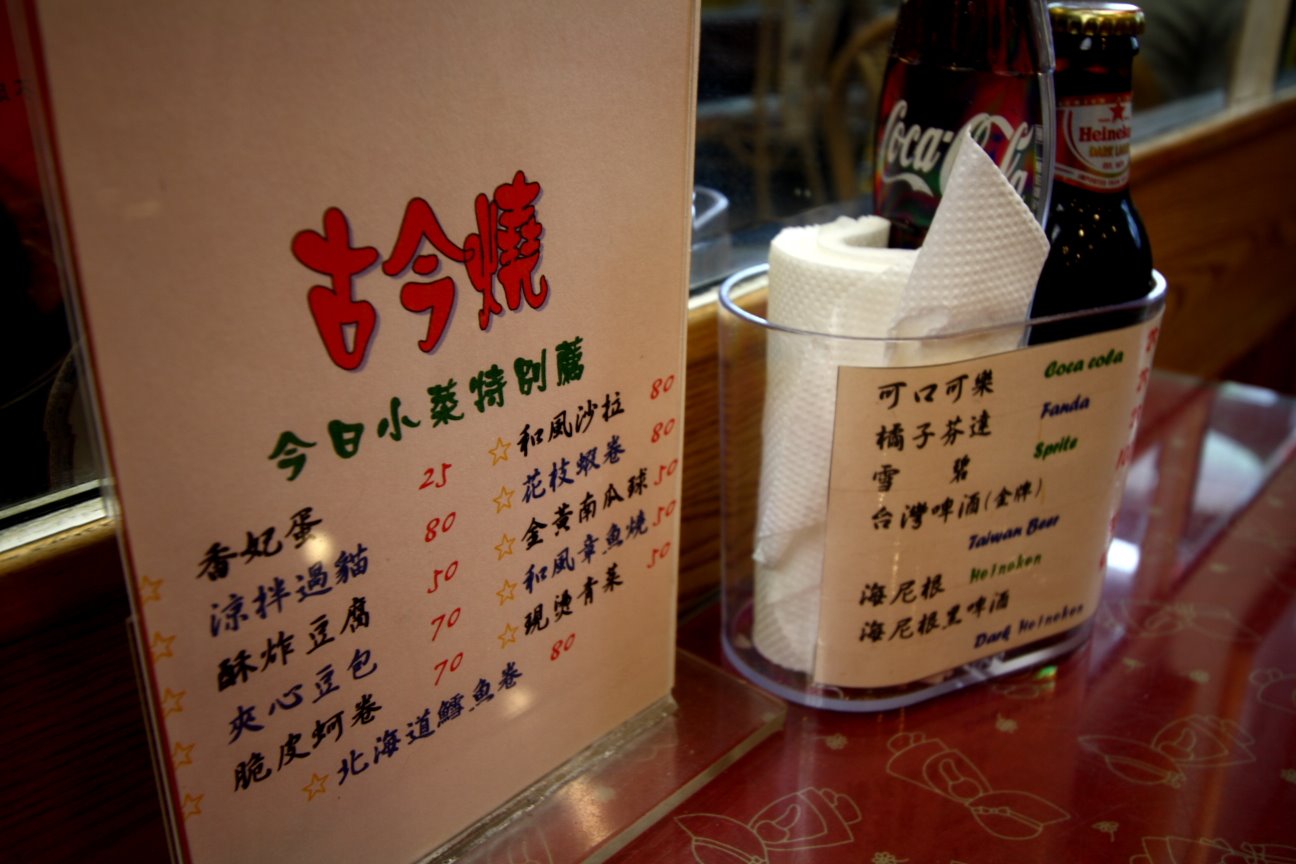 古今燒
今日小菜特別薦
香妃蛋 25
涼拌過貓 80
酥炸豆腐 50
夾心豆包 70
脆皮蚵卷 70
和風沙拉 80
花枝蝦卷 80
金黃南瓜球 50
和風章魚燒 50
現燙青菜 50
北海道鱈魚卷 80
Coca-Cola
Heineken
DARK LAGER
可口可樂 Coca cola
橘子芬達 Fanda
雪碧 Sprite
台灣啤酒(金牌)
Taiwan Beer
海尼根 Heineken
海尼根黑啤酒
Dark Heineken